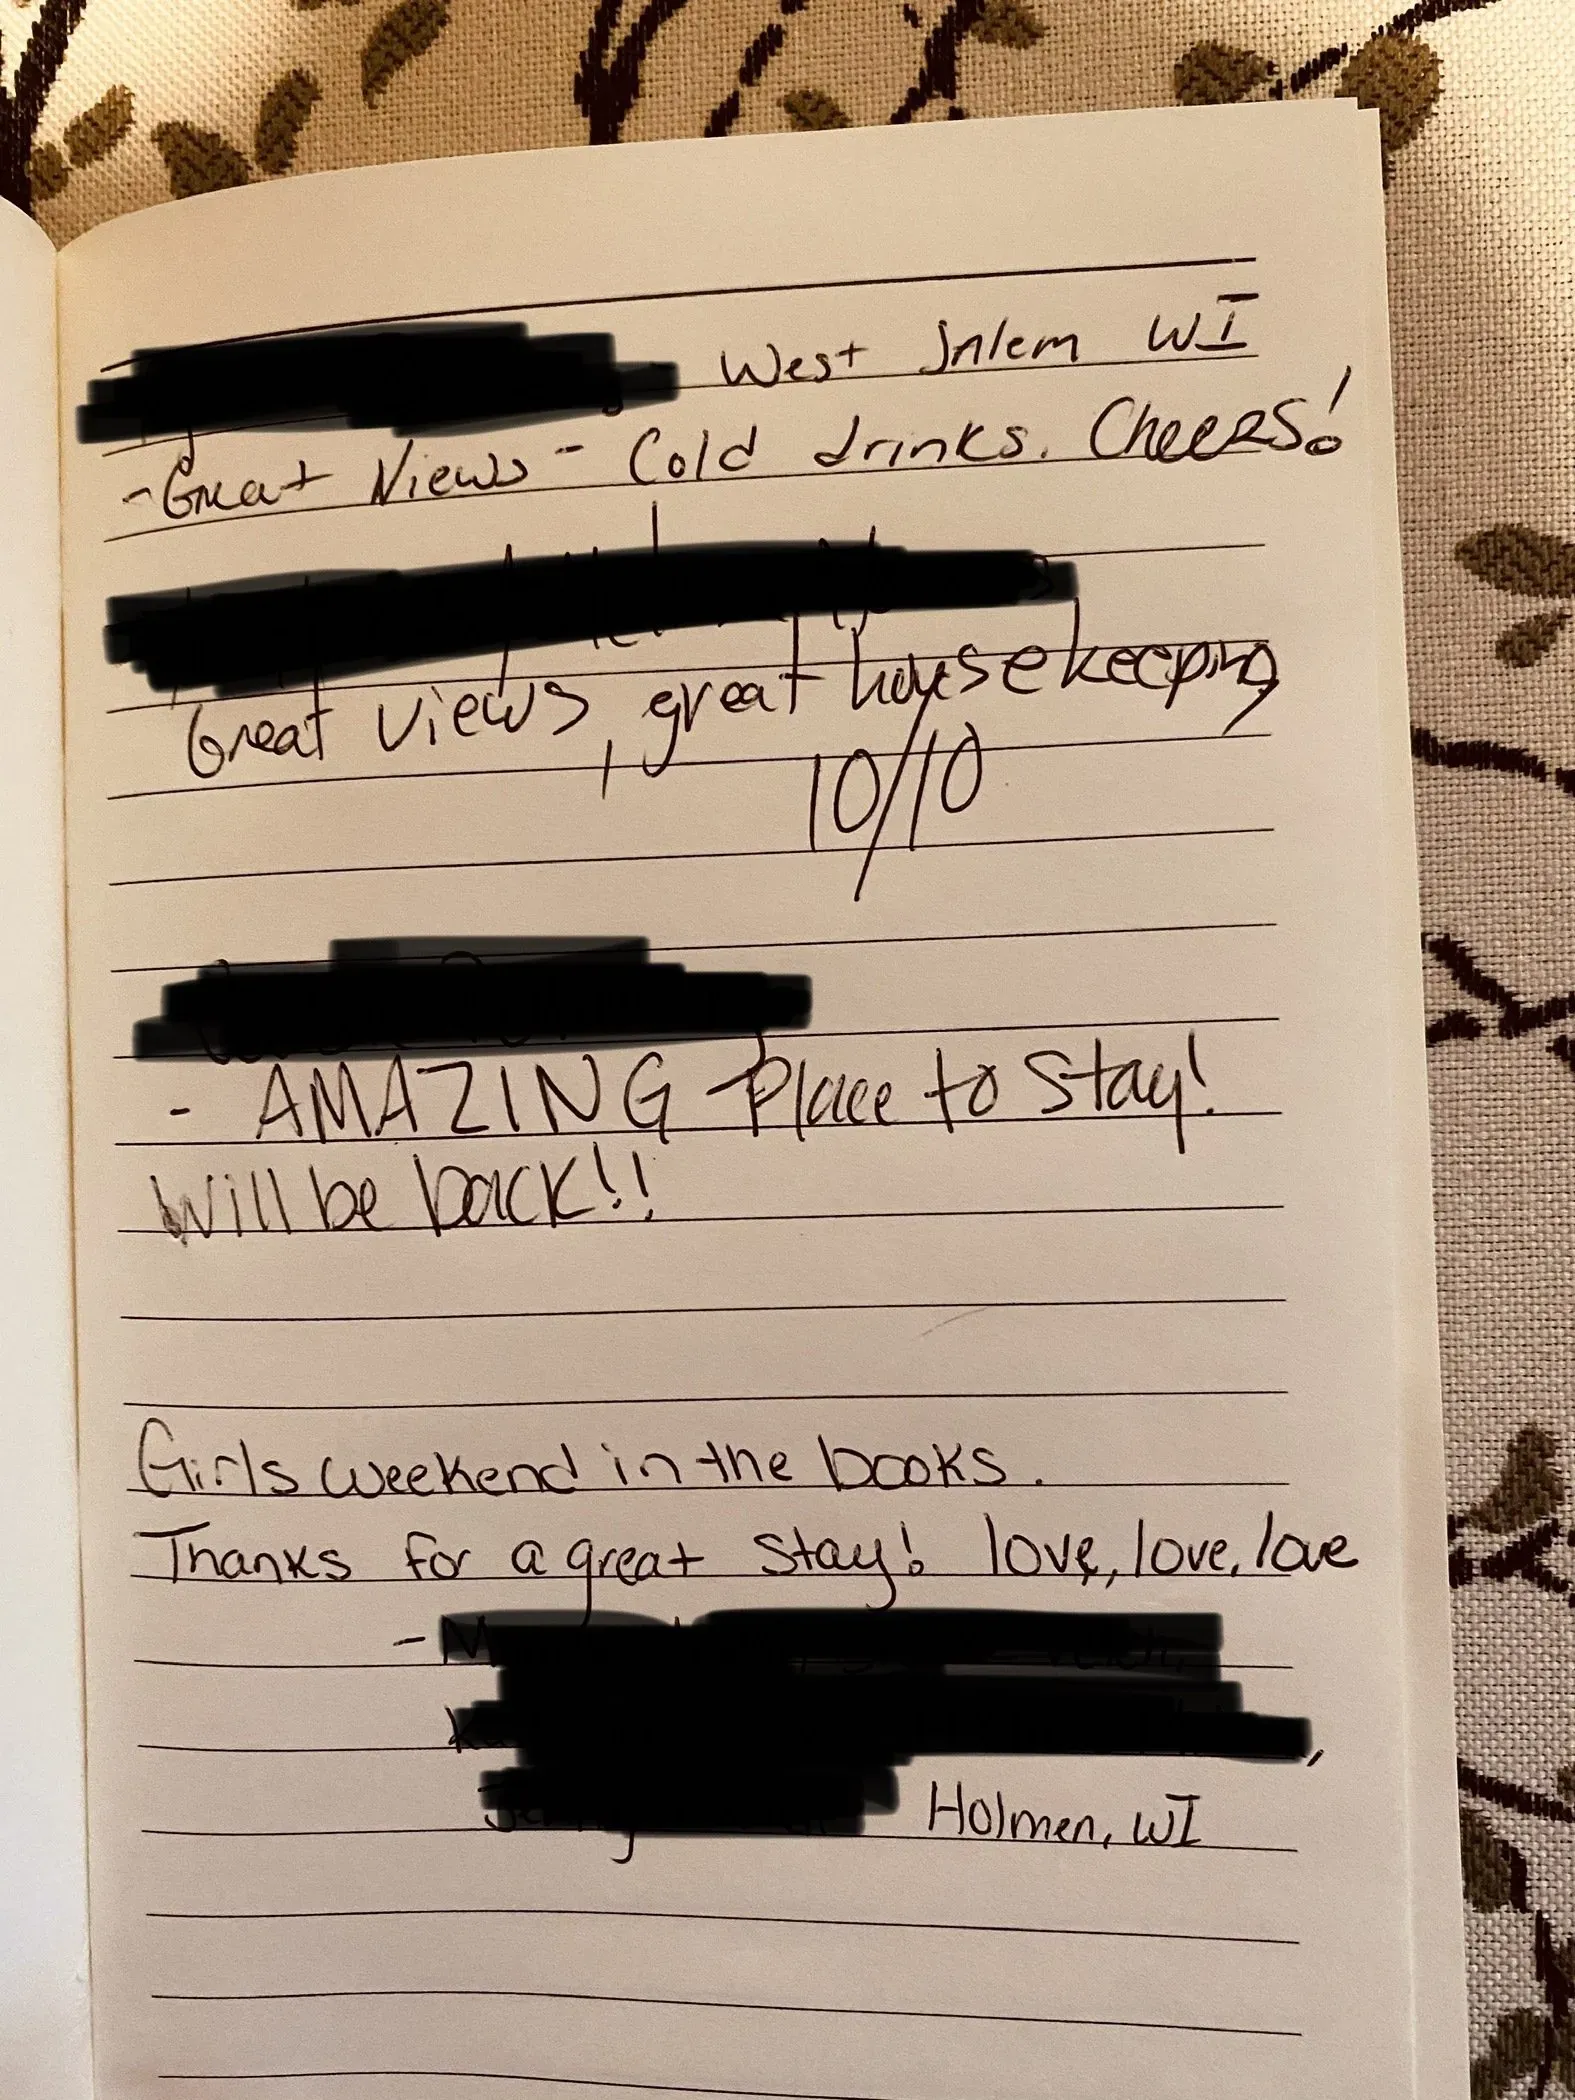 West Salem WI
- Great Views - Cold drinks. Cheers!
Great views, great housekeeping
10/10
- AMAZING Place to stay!
Will be back!!
Girls weekend in the books.
Thanks for a great stay! love, love, love
-
,
Holmen, WI